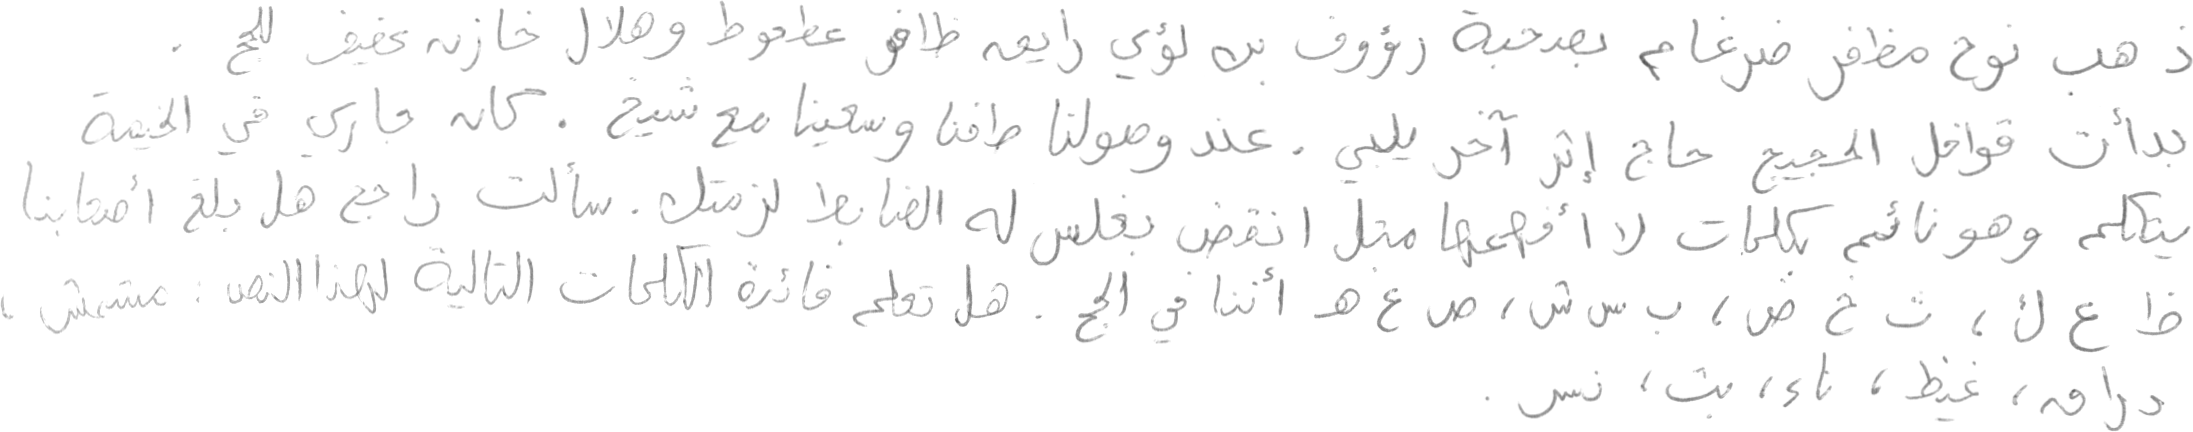 ذهب نوح مظفر ضرغام بصحبة رؤوف بن لؤي رايق ظافر عطعوط وهلال خازن عفيف للحج .
بدأت قوافل الحجيج حاج إثر آخر يلبي . عند وصولنا طفنا وسعينا مع شيخ . كان جاري في الخيمة
يتكلم وهو نائم بكلمات لا أفهمها مثل انقض بغلس له الضابط لزمتك . سألت راجح هل بلغ أصحابنا
ظ ع ك ، ث خ ض ، ب س ش ، ص غ هـ أننا في الحج . هل تعلم فائزة الكلمات التالية لهذا النص : مشمش ،
دراق ، غيظ ، ناء ، بث ، نسر .